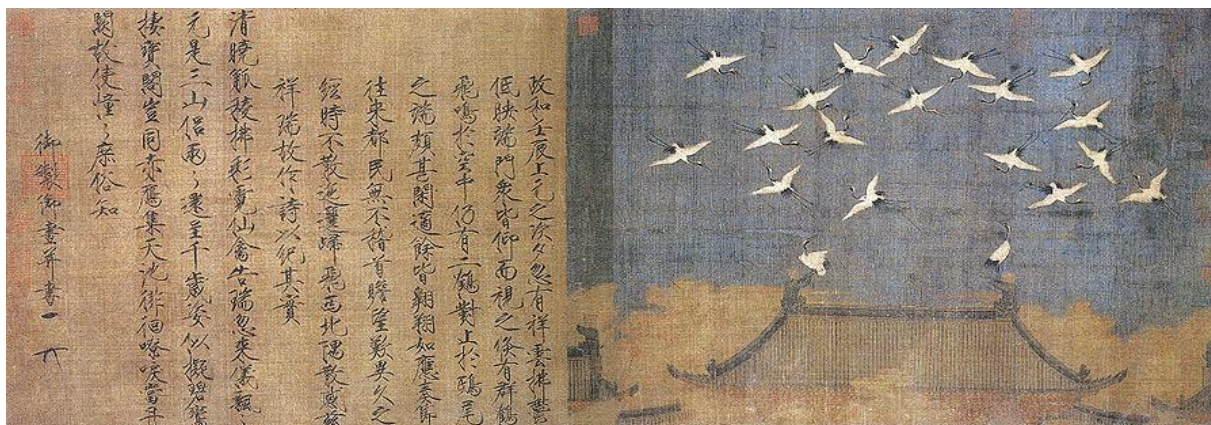 政和壬辰上元之次夕忽有祥雲拂鬱
低映端門衆皆仰而視之倏有群鶴
飛鳴於空中仍有二鶴對止於鴟尾
之端頗甚閑適餘皆翱翔如應奏節
往來都民無不稽首瞻望歎異久之
經時不散迤邐歸飛西北隅散感茲
祥瑞故作詩以紀其實
清曉觚稜拂彩霓仙禽告瑞忽來儀飄〻
元是三山侶兩〻還呈千歲姿似擬碧鸞
棲寶閣豈同赤鴈集天池徘徊嘹唳當丹
闕故使憧〻庶俗知
御製御畫并書